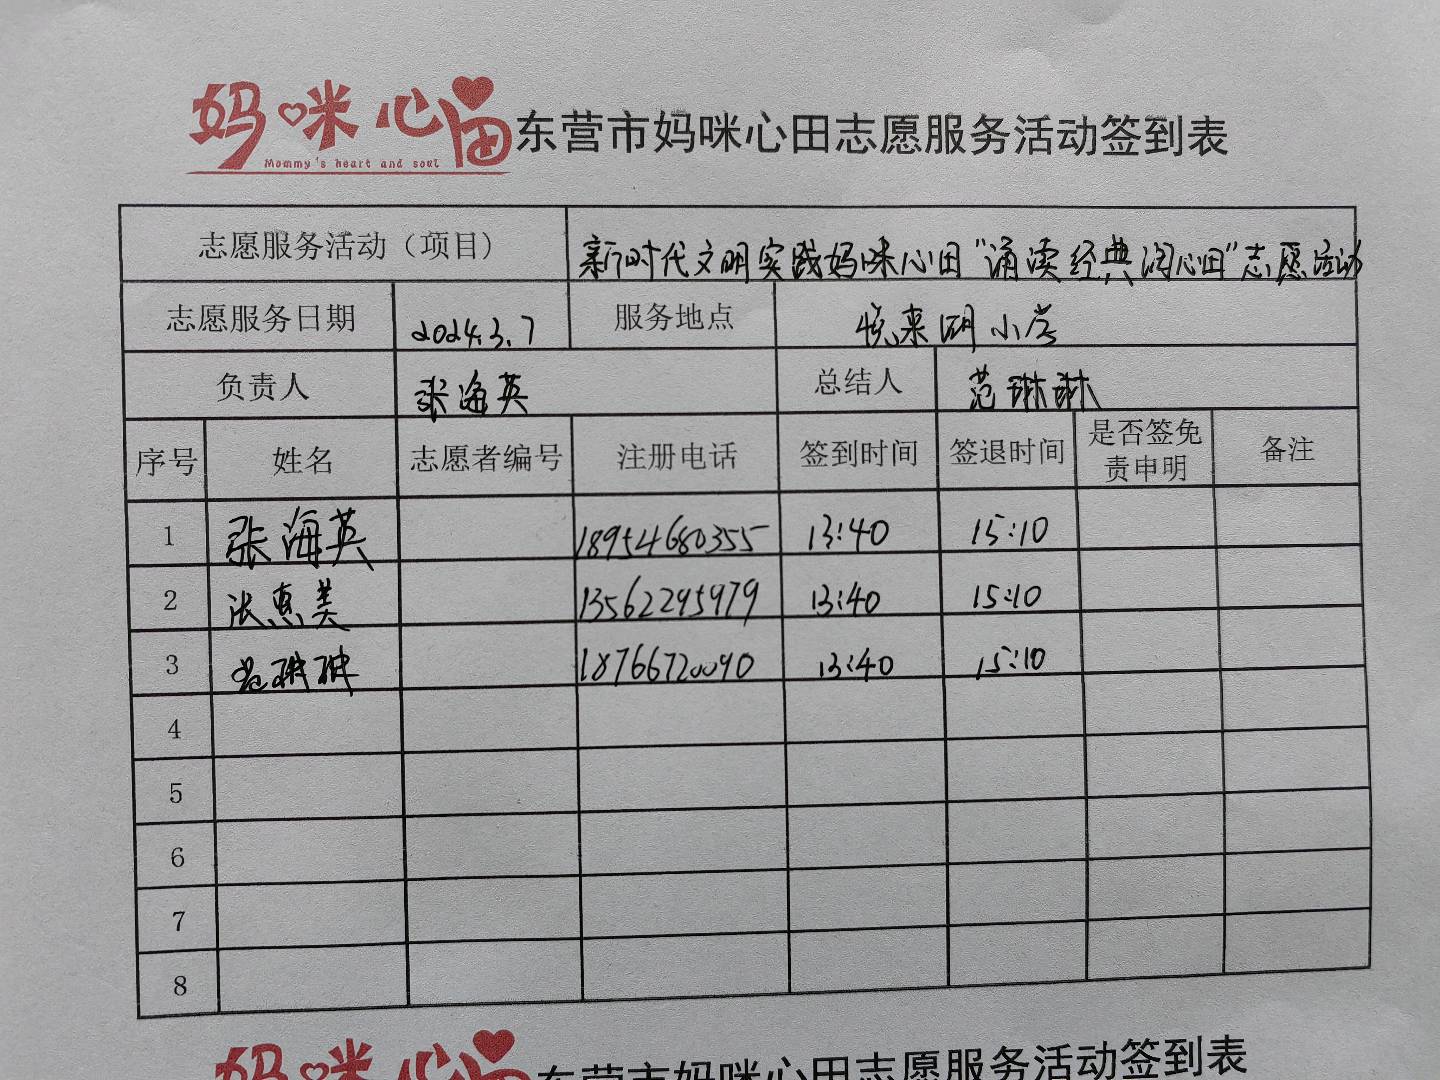 妈咪心田
Mommy's heart and soul
东营市妈咪心田志愿服务活动签到表
志愿服务活动（项目） 新时代文明实践妈咪心田“诵读经典润心田”志愿活动
志愿服务日期 2024.3.7 服务地点 悦来湖小学
负责人 张海英 总结人 范琳琳
序号 姓名 志愿者编号 注册电话 签到时间 签退时间 是否签免责申明 备注
1 张海英 18954680355 13:40 15:10
2 张惠美 13562295979 13:40 15:10
3 范琳琳 18766720090 13:40 15:10
4
5
6
7
8
妈咪心田
东营市妈咪心田志愿服务活动签到表